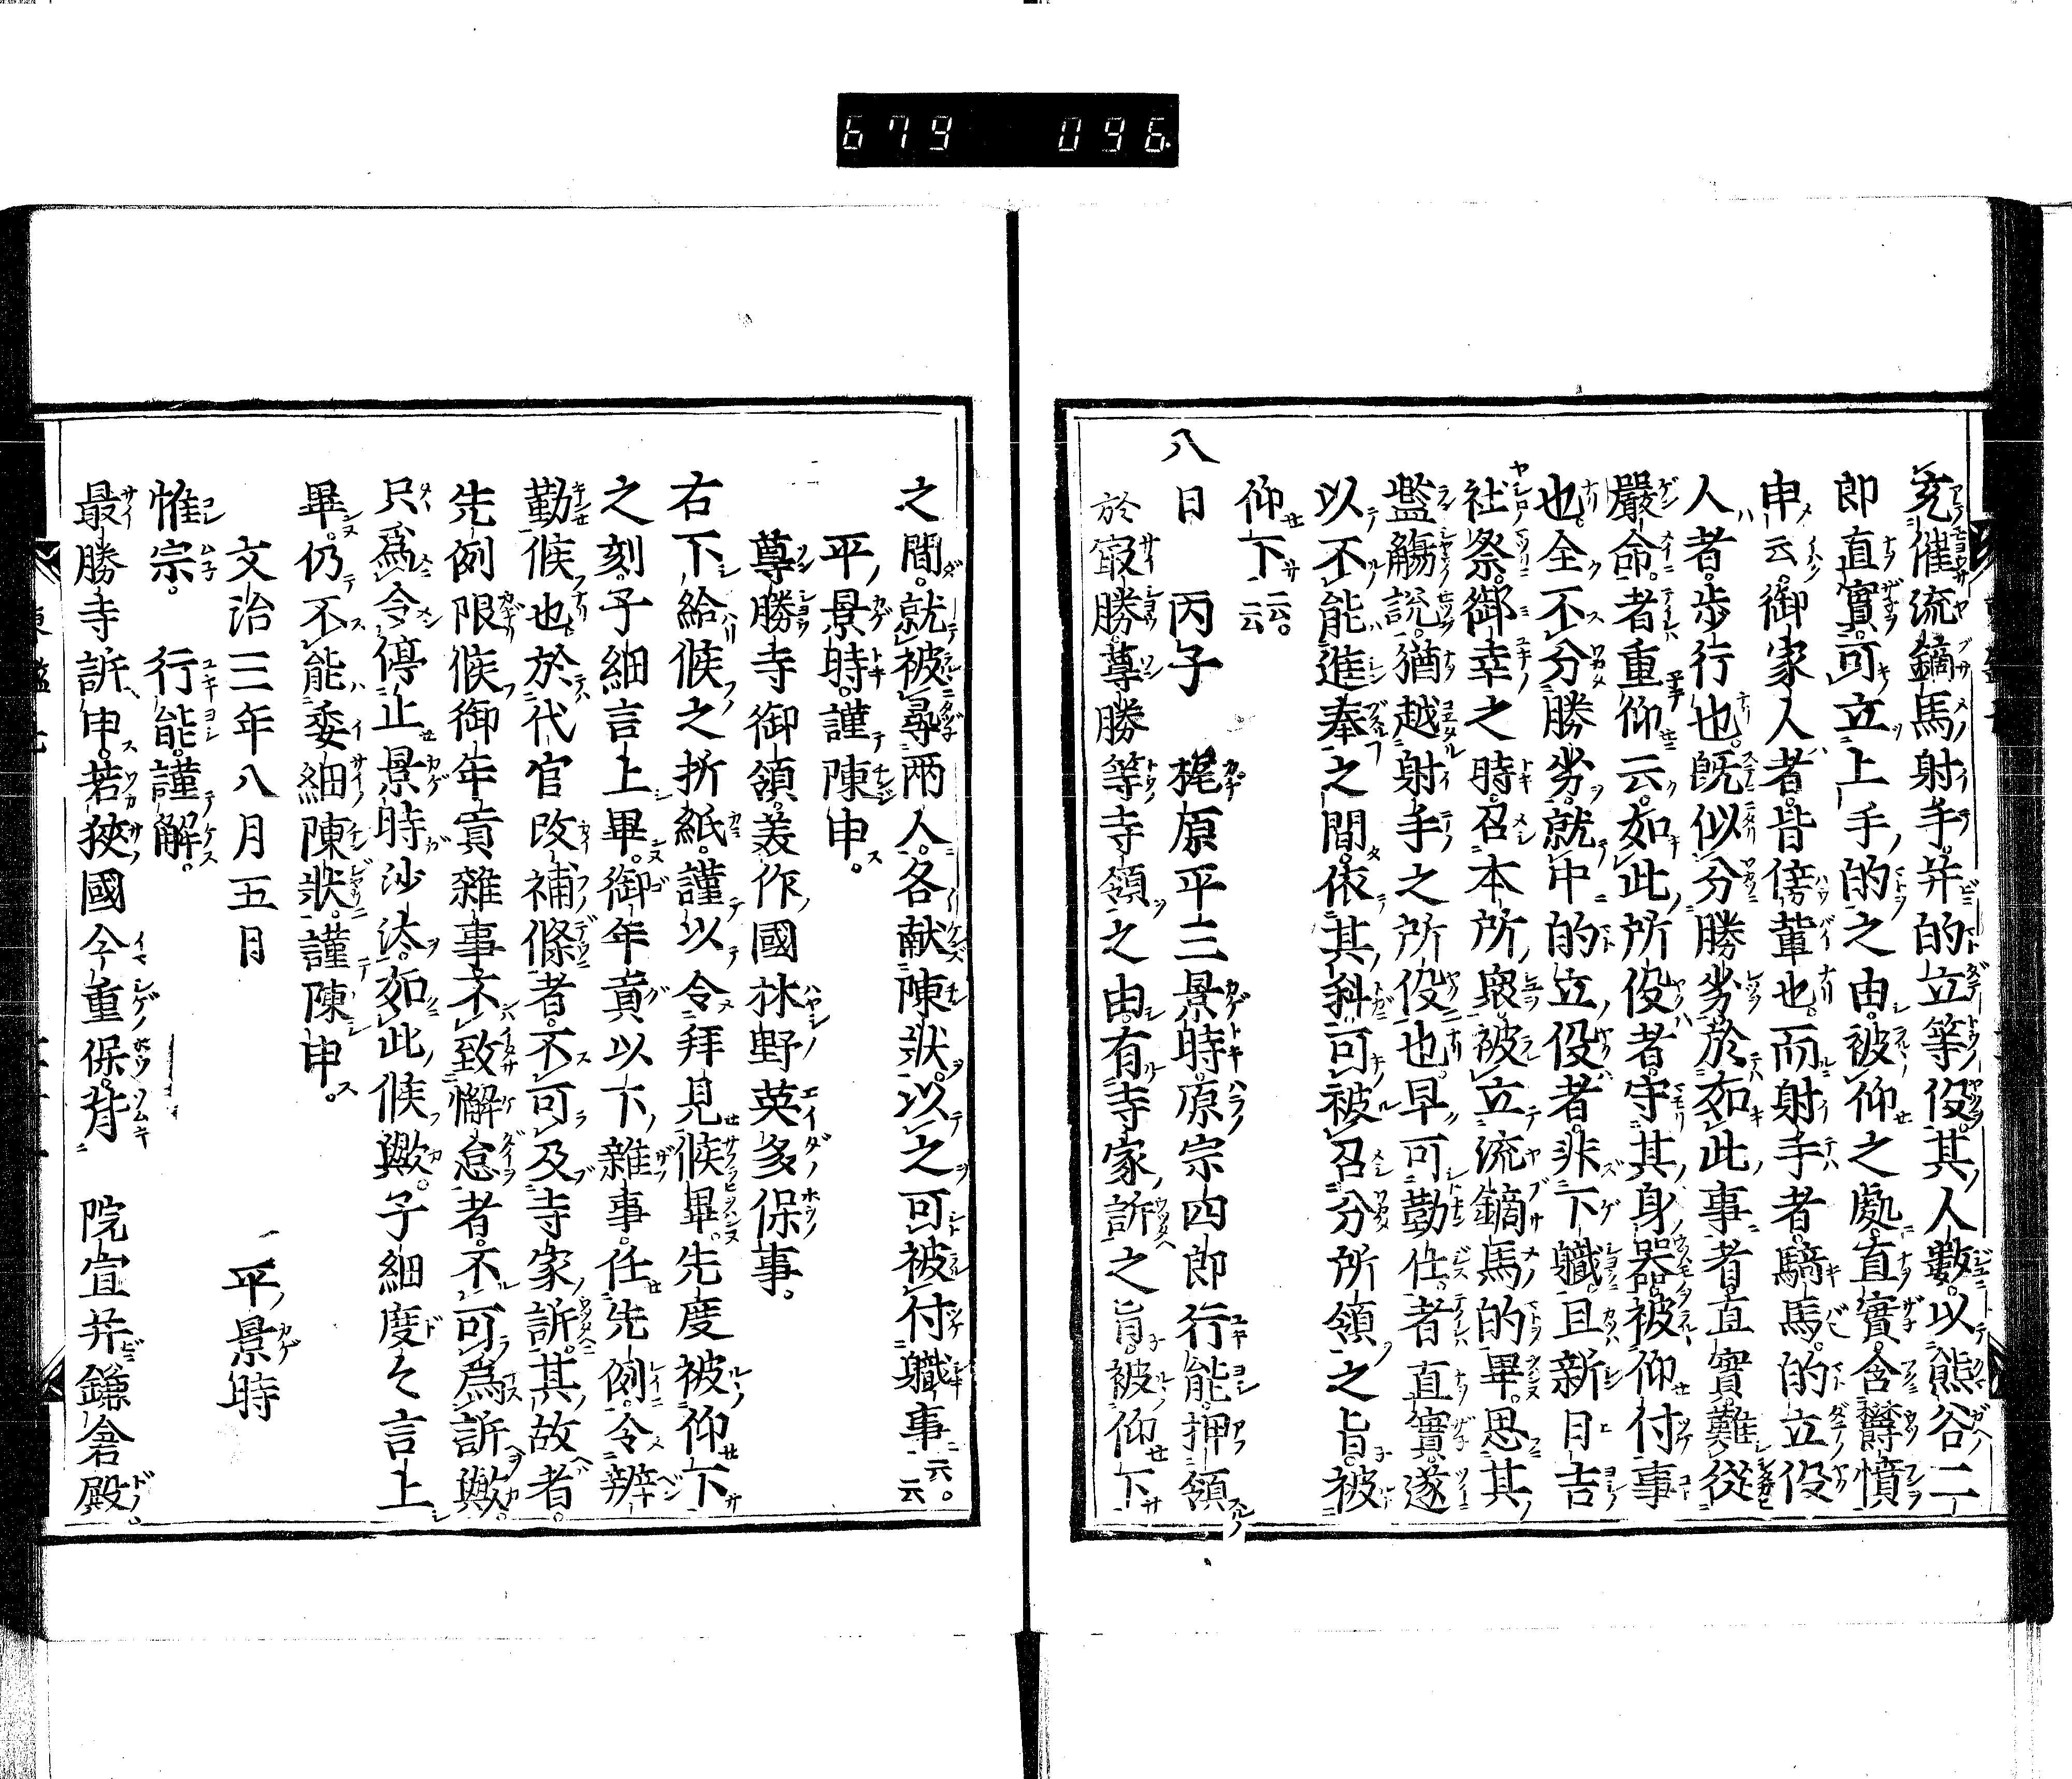 679 096
充催流鏑馬射手并的立等役其人數以熊谷二
郎直實可立上手的之由被仰之處直實含欝憤
申云御家人者皆傍輩也而射手者騎馬的立役
人者歩行也既似分勝劣於如此事者直實難從
嚴命者重仰云如此所役者守其身器被仰付事
也全不分勝劣就中的立役者非下職且新日吉
社祭御幸之時召本所衆被立流鏑馬的畢思其
濫觴説猶越射手之所役也早可勤仕者直實遂
以不能進奉之間依其科可被召分所領之旨被
仰下云云
八日 丙子 梶原平三景時原宗四郎行能押領
於寂勝尊勝等寺領之由有寺家訴之旨被仰下
之間就被尋兩人各献陳状以之可被付職事云云
平景時謹陳申
尊勝寺御領美作國林野英多保事
右下給候之折紙謹以令拜見候畢先度被仰下
之刻子細言上畢御年貢以下雜事任先例令辨
勤候也於代官改補條者不可及寺家訴其故者
先例限候御年貢雜事不致懈怠者不可爲訴歟
只爲令停止景時沙汰如此候歟子細度々言上
畢仍不能委細陳状謹陳申
文治三年八月五日 平景時
惟宗 行能謹解
最勝寺訴申若狹國今重保背 院宣并鎌倉殿